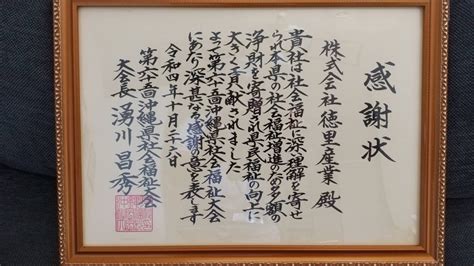 感謝状
株式会社徳里産業 殿
貴社は社会福祉に深い理解を寄せ
られ本県の社会福祉増進のため多額の
浄財を寄贈され県民福祉の向上に
大きく貢献されました
よって第六十五回沖縄県社会福祉大会
にあたり深甚なる感謝の意を表します
令和四年十月二十六日
第六十五回沖縄県社会福祉大会
大会長 湧川昌秀